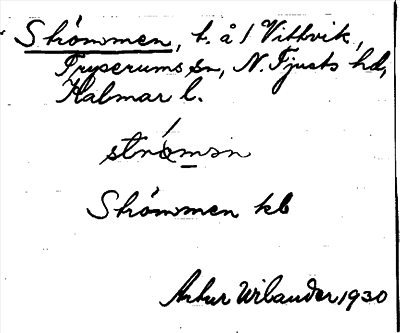 Strömmen, t. å / Vittvik,
Tryserums sn, N. Tjusts hd,
Kalmar l.
strömən
Strömmen kb
Artur Wilander 1930